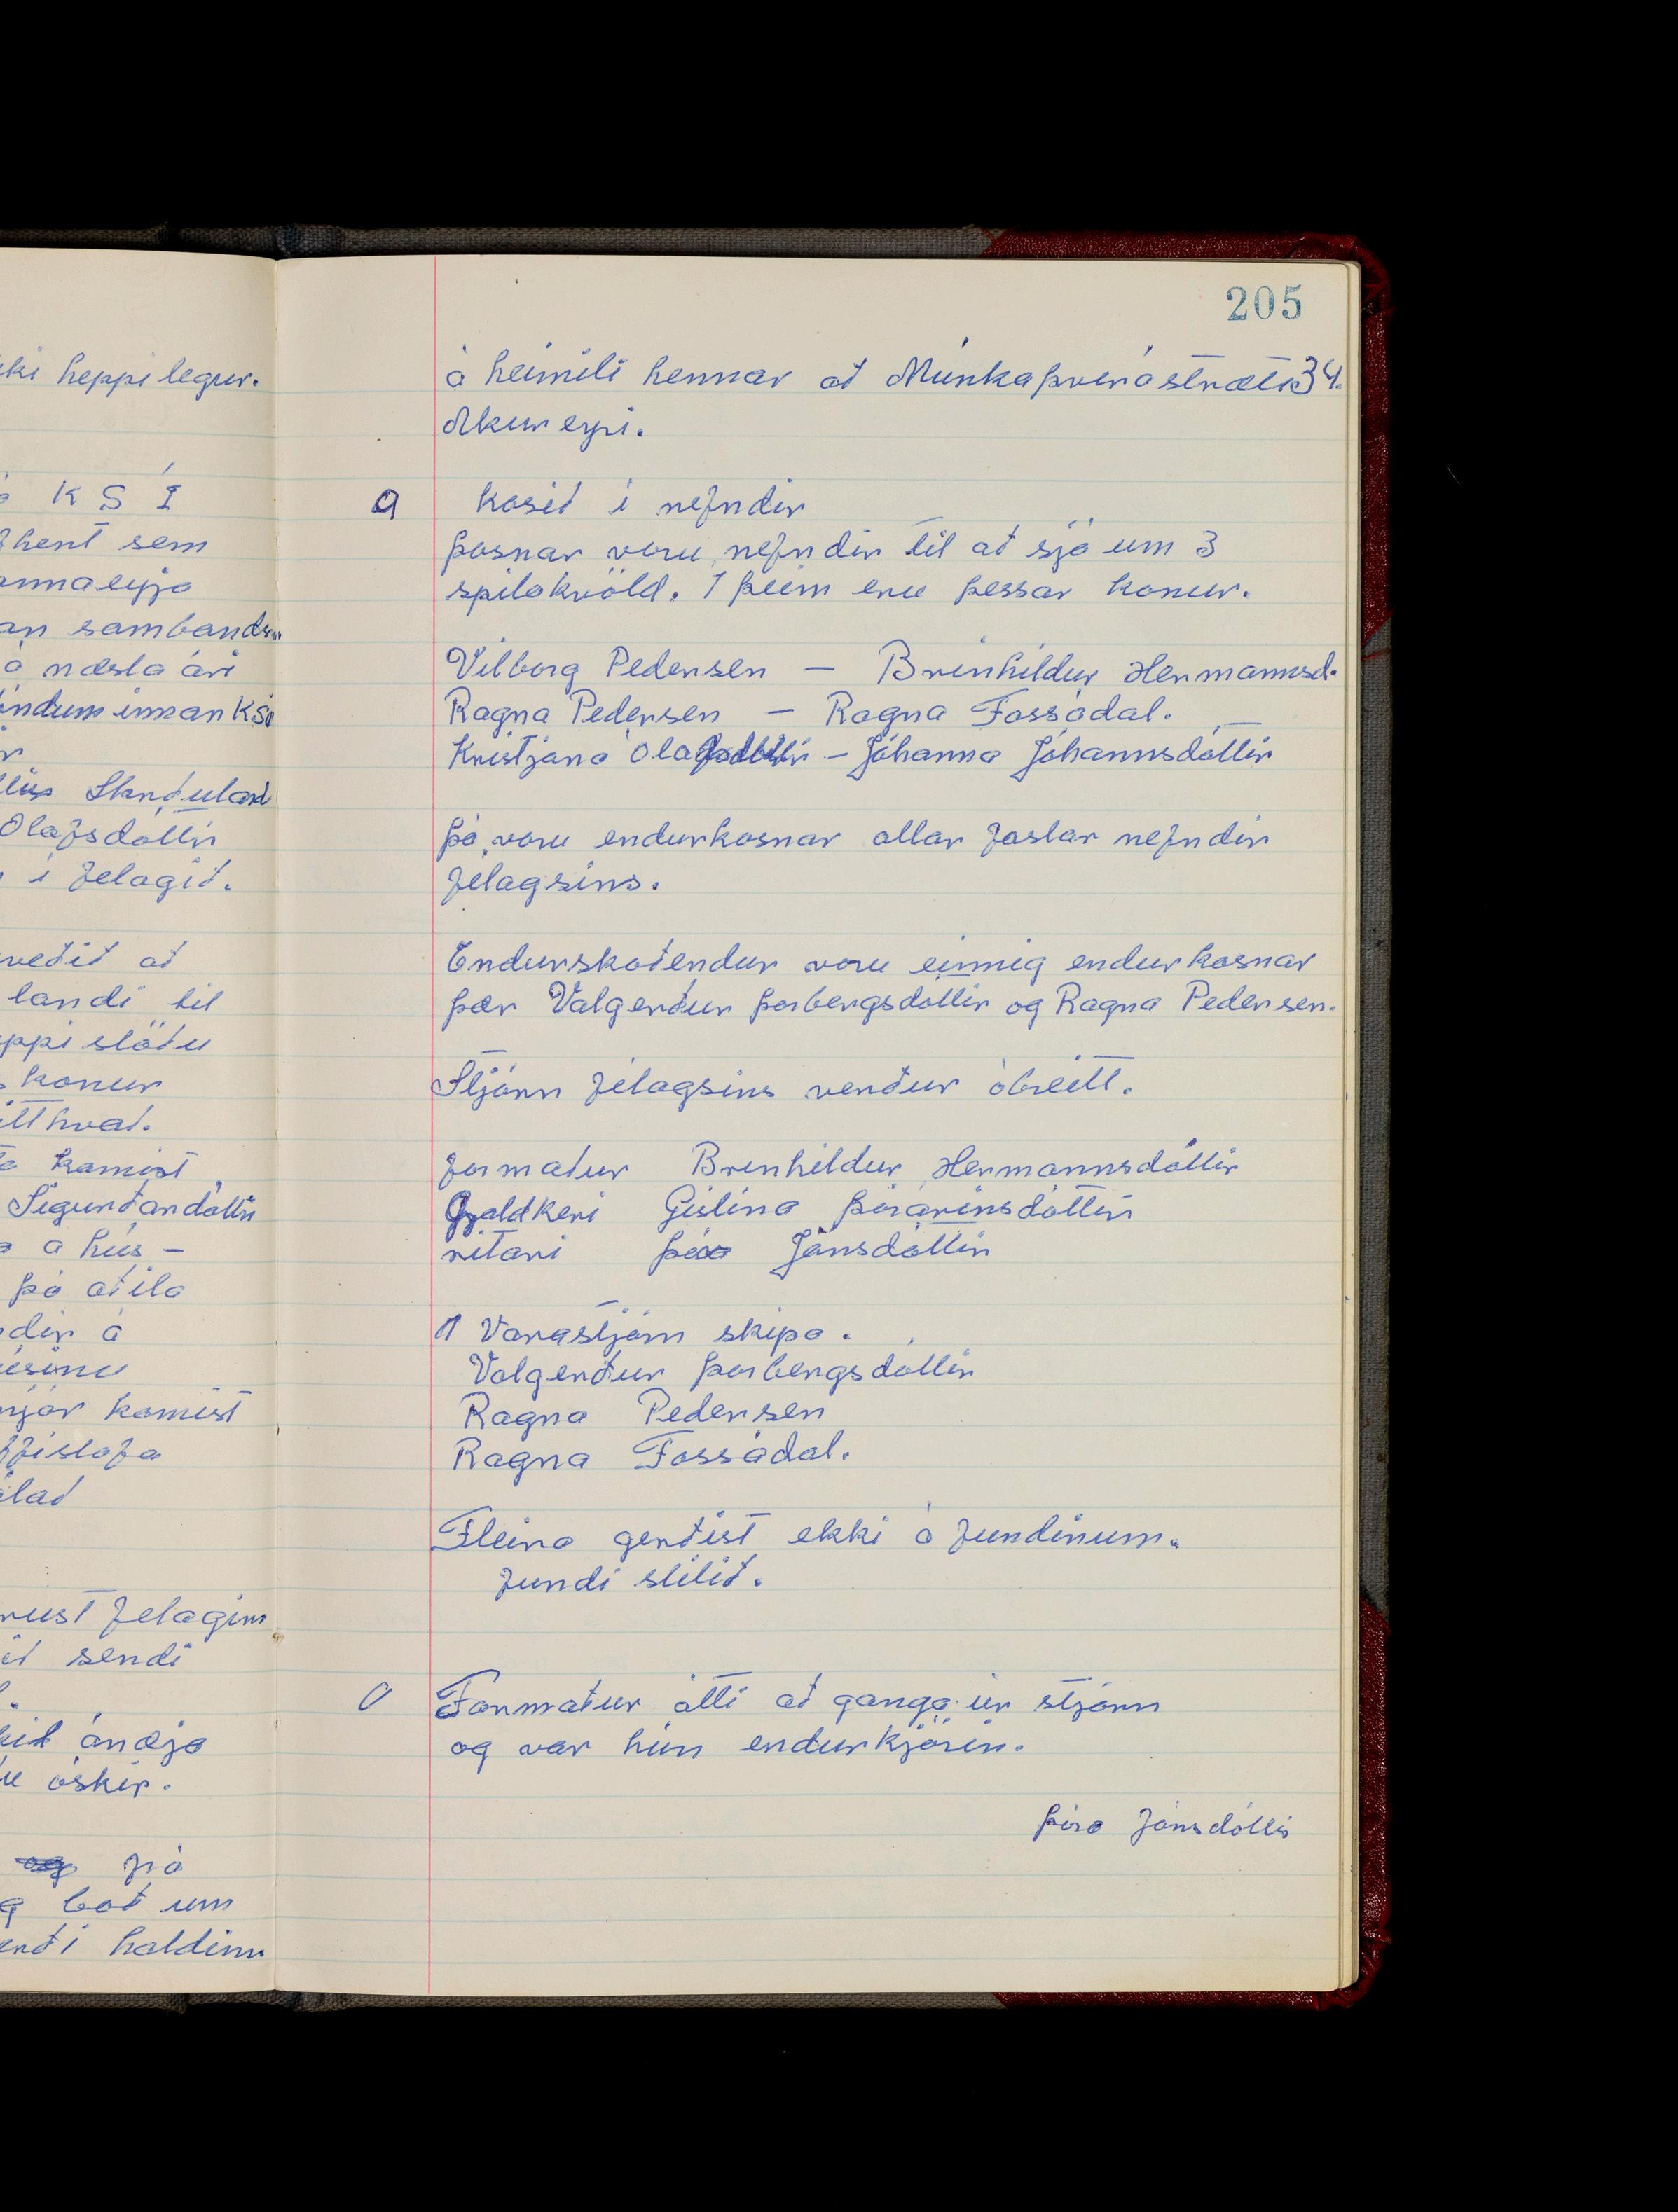 ki heppilegur.
K S Í
hent sem
annaeyja
an sambands
á næsta ári
öndum innan KSÍ
Ólafsdóttir
í félagið.
veðið að
landi til
konur
itthvað.
komist
Sigurðardóttir
a hús -
þá aðila
dir á
komist
lað
rust félaginu
sendi
ánægja
óskir.
frá
boð um
haldinn
205
á heimili hennar að Múnkaþverástræti 34.
Akureyri.
9 Kosið í nefndir
Þosnar voru nefndir til að sjá um 3
spilakvöld. Í þeim eru þessar konur.
Vilborg Pedersen — Brinhildur Hermannsd.
Ragna Pedersen — Ragna Fossádal.
Kristjana Ólafsdóttir — Jóhanna Jóhannsdóttir
Þá voru endurkosnar allar fastar nefndir
félagsins.
Endurskoðendur voru einnig endurkosnar
þær Valgerður Þorbergsdóttir og Ragna Pedersen.
Stjórn félagsins verður óbreitt.
formaður Brinhildur Hermannsdóttir
Gjaldkeri Gislína Þórarinsdóttir
ritari Þóra Jónsdóttir
Í Varastjórn skipa.
Valgerður Þorbergsdóttir
Ragna Pedersen
Ragna Fossádal.
Fleira gerðist ekki á fundinum.
fundi slitið.
Formaður átti að ganga úr stjórn
og var hún endurkjörin.
Þóra Jónsdóttir